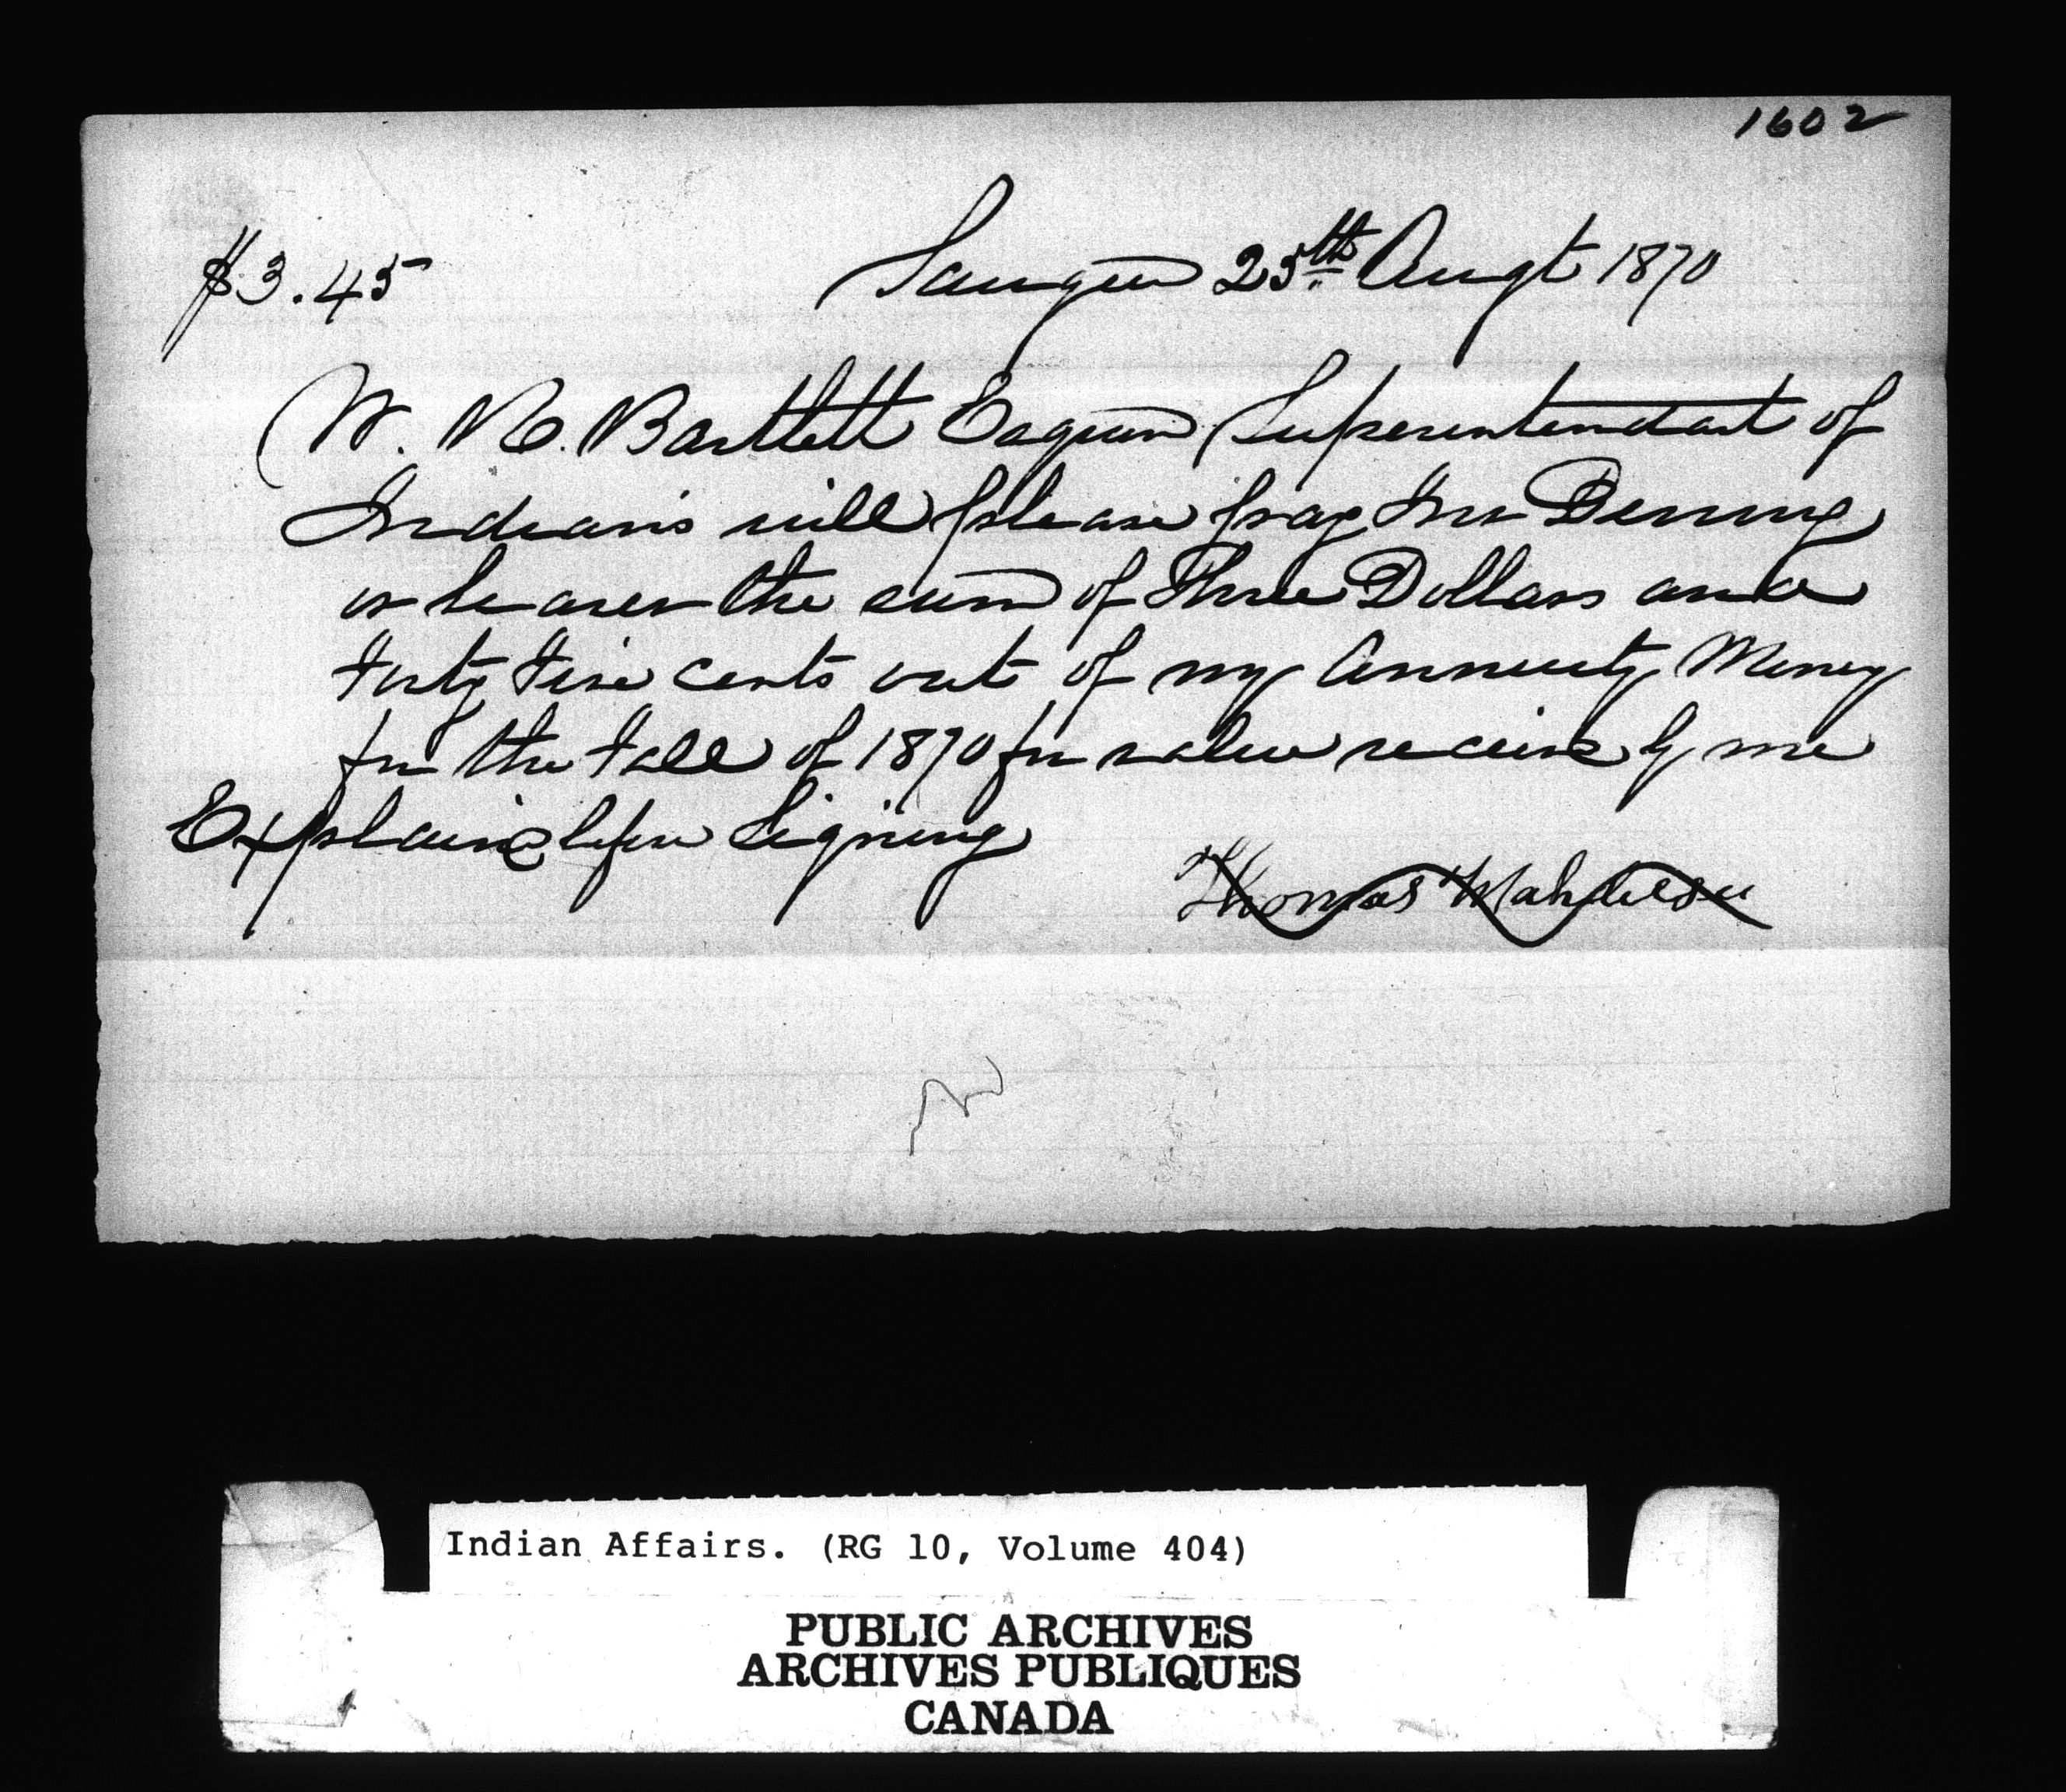 1602
$3.45 Saugeen 25th Augt 1870
W. R. Bartlett Esquire Superintendant of
Indians will please pay Mr Bening
or bearer the sum of Three Dollars and
forty five cents out of my Annuity Money
for the fall of 1870 for value received by me
Explained before Signing
Thomas
Indian Affairs. (RG 10, Volume 404)
PUBLIC ARCHIVES
ARCHIVES PUBLIQUES
CANADA